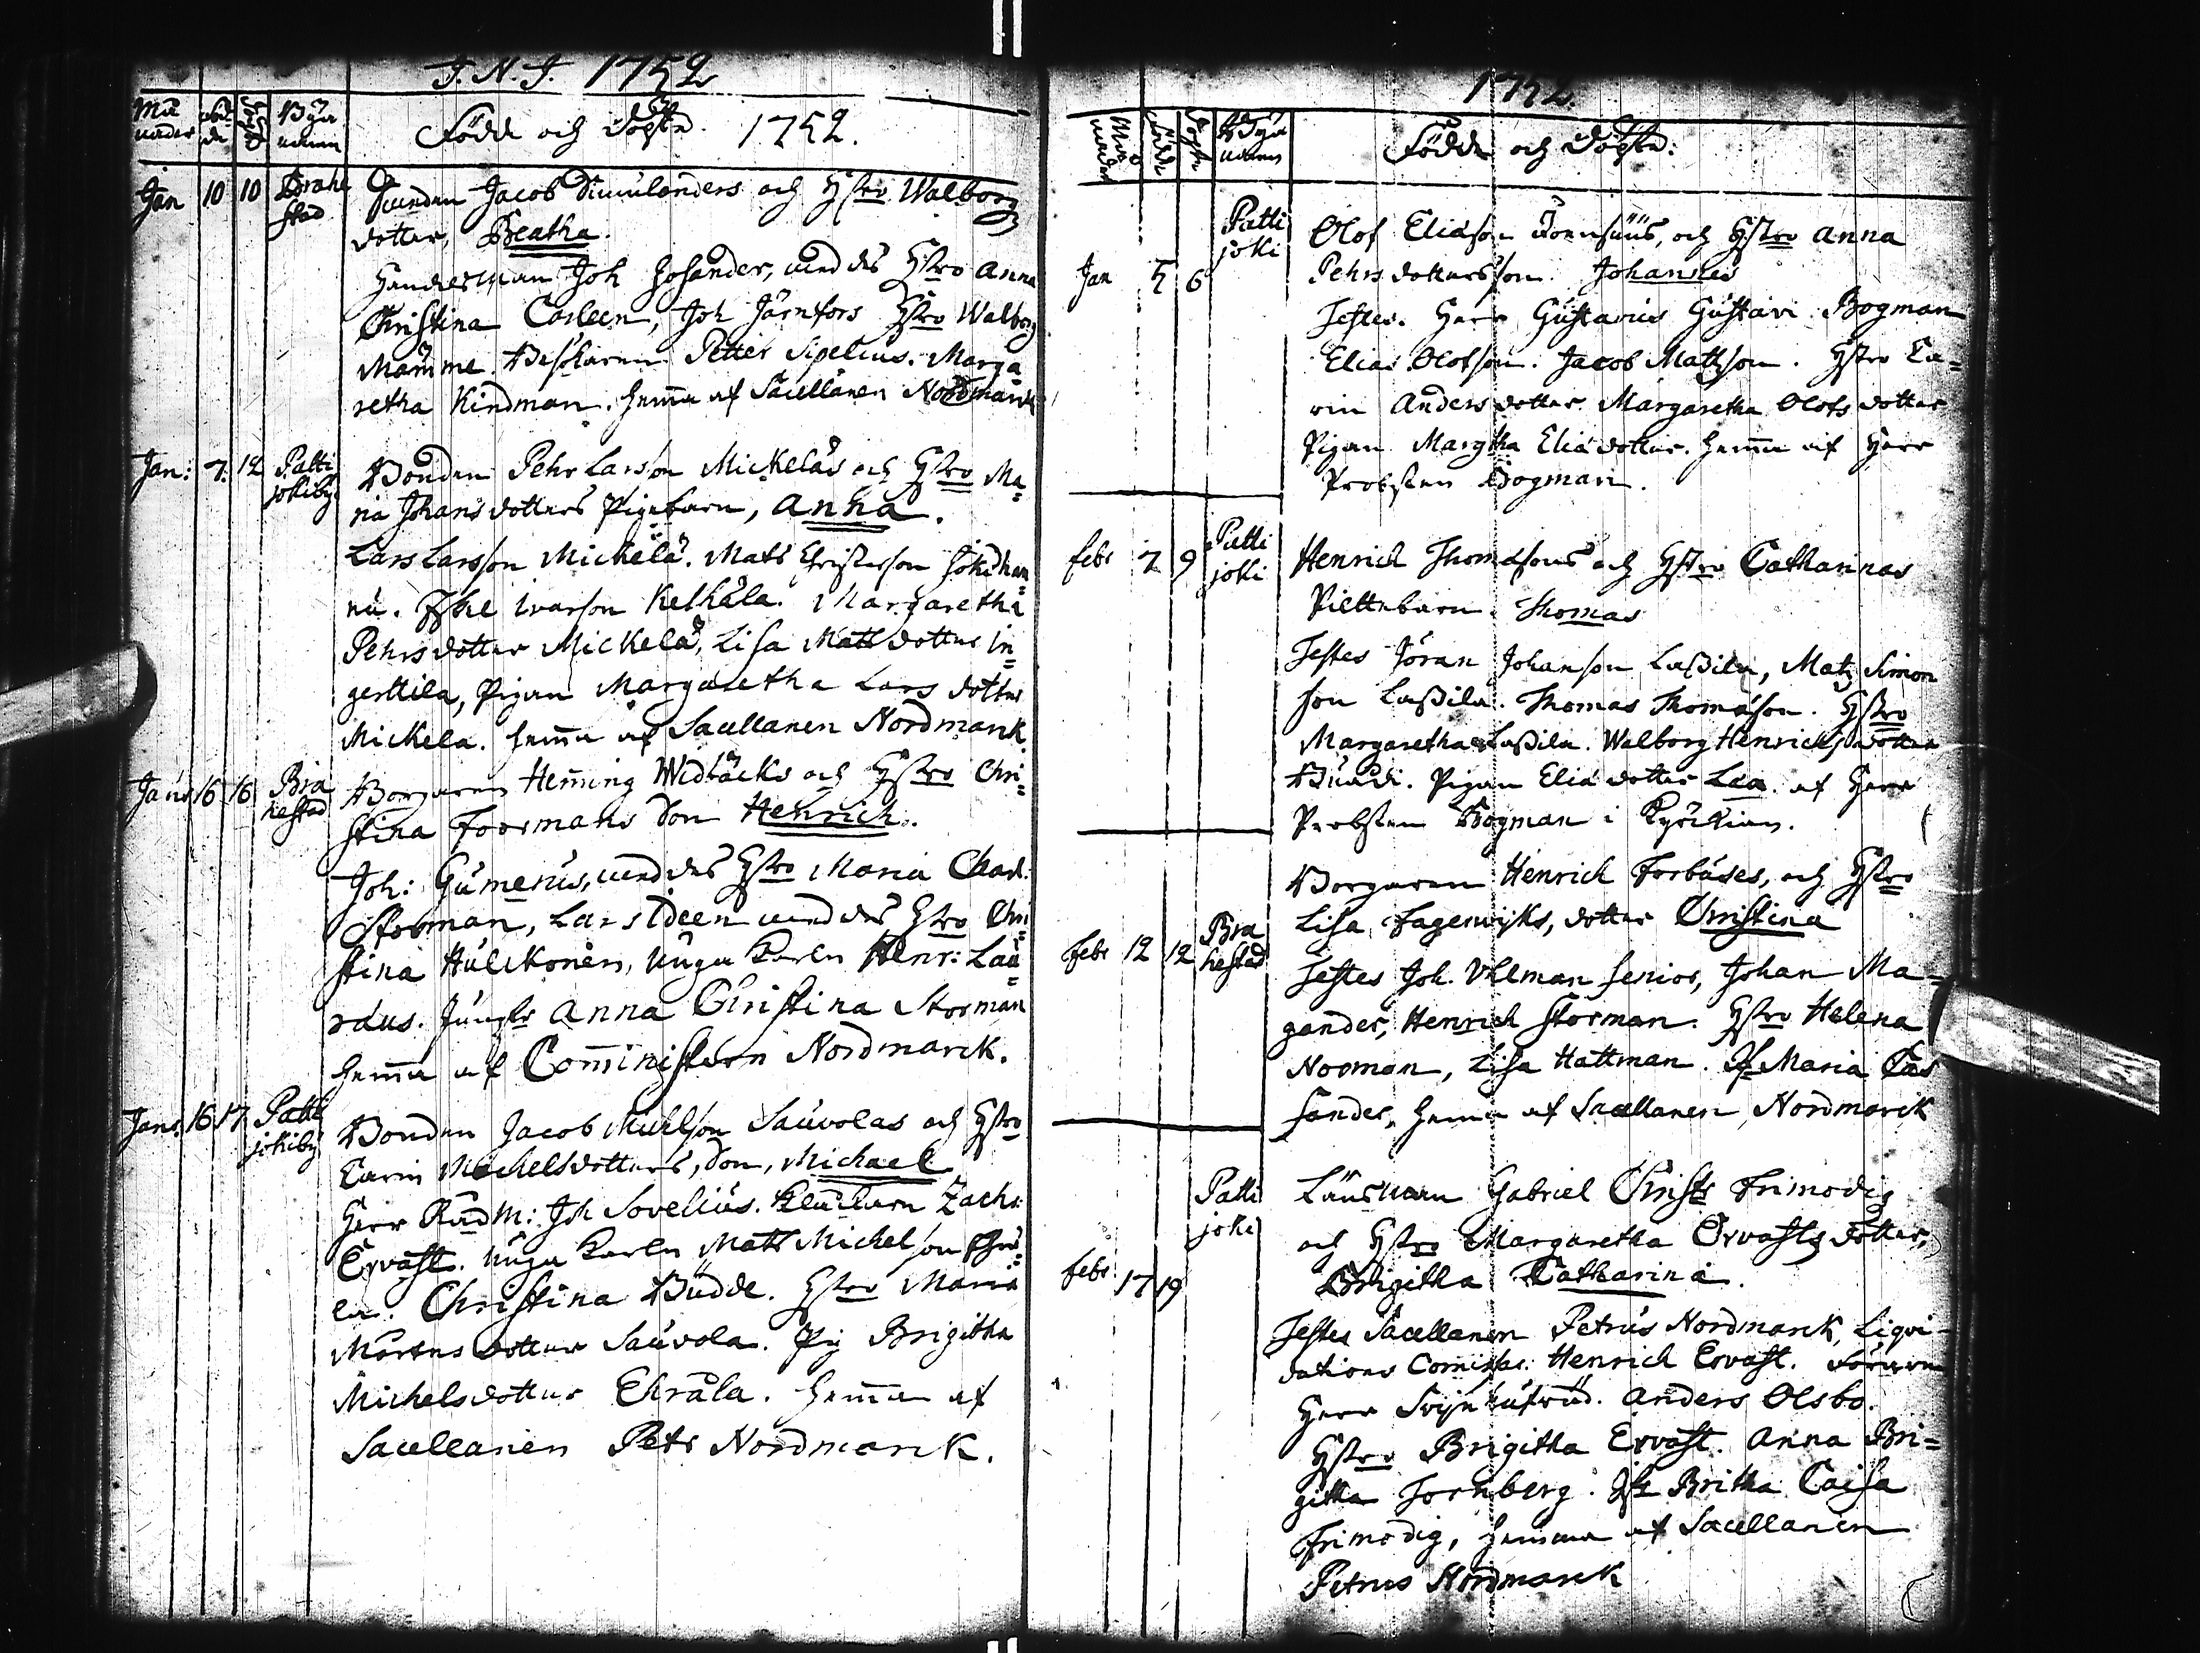 J. N. J. 1752
Må nader
föd de
Byn namn
Födde och Döpte. 1752.
Jan 10 10 Brahe stad
Jacob Simulanders och Hstro Walborg
dotter, Beatha.
Joh Hosander, med des Hstro Anna
Christina Carleen, Joh Järnfors Hstro Walborg
Mamme. Besökaren Petter Sipelius. Marga
retha Kindman. hema af Sacellanen Nordmarck
Jan: 7. 12 Patti jokiby
Bonden Pehr Larsson Mickeläs och Hstro Ma=
ria Johansdotters Pigebarn, Anna.
Lars Larsson Mickelä. Mats Christersson
Eskel Ivarson Kelhälä. Margaretha
Pehrsdotter Mickelä, Lisa Mattsdotter In=
gerttila, Pigan Margaretha Lars dotter
Mickela. hema af Sacellanen Nordmarck
Janr 16 16 Bra hestad
Borgaren Heming Widbäcks och Hstro Chri=
stina Foormans Son Henrich.
Joh: Gumerus, med des Hstro Maria Chad.
Storman, Lars Ideen med des Hstro Chri
stina Hulckonen, Unga Karln Henr: Lau=
rdus. Jungfr Anna Christina Storman
hema af Comministern Nordmarck.
Janr. 16 17 Patti jokiby
Bonden Jacob Michelson Sauvolas och Hstro
Carin Michelsdotters, Son, Michael
Herr Rådm: Joh Sovelius. Klåckaren Zachr:
Ervast. Unga Karln Matts Michelson
la. Christina Budde. Hstro Maria
Mårtens dotter Sauvola. Pig Brigitha
Michelsdotter Ehråla. hema af
Sacellanen Petr Nordmarck.
1752.
Må nader
Födde
Döpte
Bya namn
Födde och Döpte:
Jan 5 6 Patti joki
Olof Eliason och Hstro Anna
Pehrsdotters son Johannes
Testes. Herr Gustavus Gustavi Bogman
Elias Olofson. Jacob Matsson. Hstro Ca=
rin Andersdotter. Margaretha Olofsdotter
Pigan Margtha Eliædotter. hema af Herr
Probsten Bogman.
Febr 7 9 Patti joki
Henrich Thomasons och Hstro Catharinas
Piltebarn Thomas
Testes Jöran Johanson Lassila, Mats Simon
son Lassila. Thomas Thomason. Hstro
Margaretha Lassila. Walborg Henrichsdotter
Pigan Eliædotter Laa. af Herr
Probsten Bogman i Kyrckian.
Febr 12 12 Bra hestad
Borgaren Henrich Forbuses, och Hstro
Lisa Fagerwijks, dotter Christina
Testes Joh. Uhlman senior, Johan Ma=
gander, Henrich Storman. Hstro Helena
Nooman, Lisa Hattman. Jf Maria Cas
sander, hema af Sacellanen Nordmarck
Febr 17 19 Patti joki
Länsman Gabriel Christr Frimodigs
och Hstro Margaretha Ervasts dotter,
Brigitha Catharina.
Testes Sacellanen Petrus Nordmarck, Liqvi-
dations Comissar. Henrich Ervast.
Herr Anders Olsbo.
Hstro Brigitha Ervast. Anna Bri=
gitta Fornberg. Jfr Britha Caisa
Frimodig, hemma af Sacellanen
Petrus Nordmarck